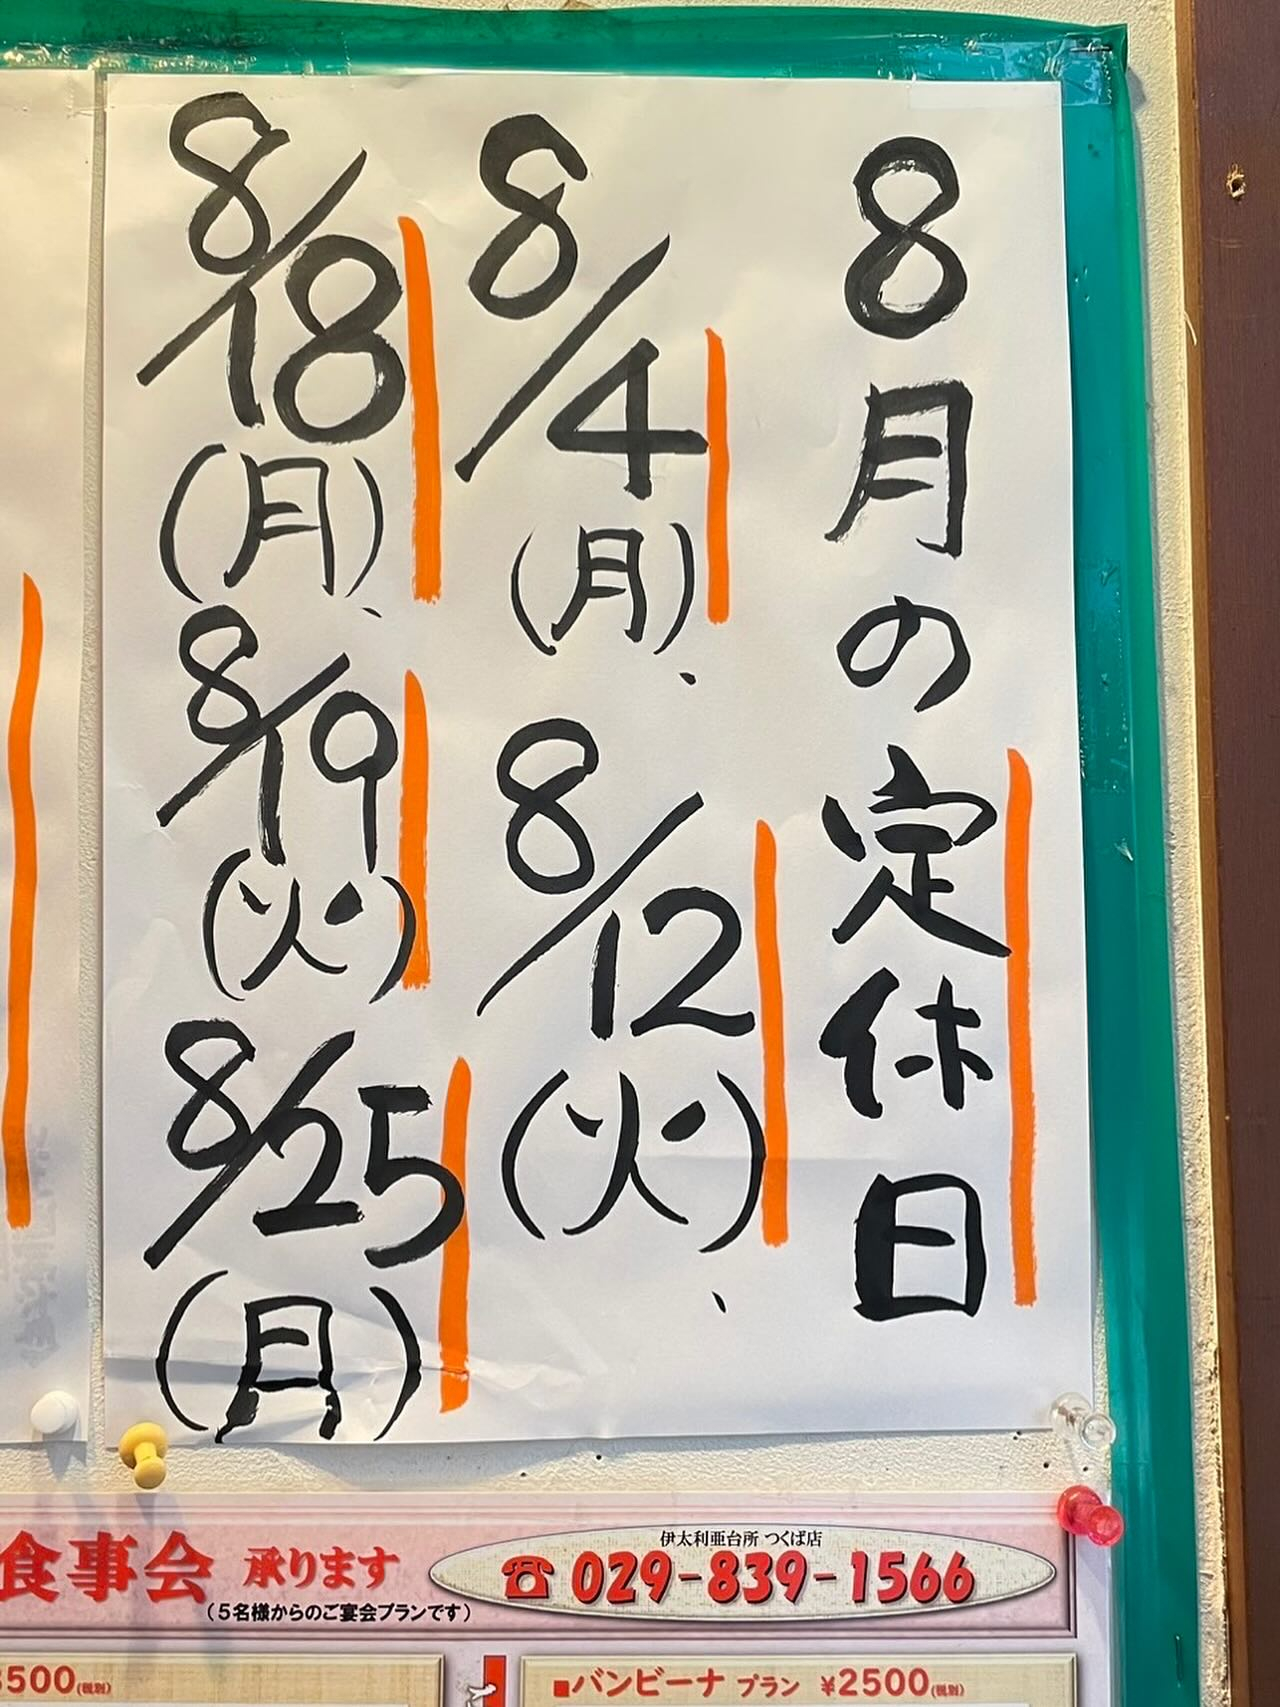 8月の定休日
8/4(月)、8/12(火)、
8/18(月)、8/19(火)
8/25(月)
食事会 承ります
(5名様からのご宴会プランです)
伊太利亜台所 つくば店
☎029-839-1566
3500(税別)
■バンビーナ プラン ¥2500(税別)